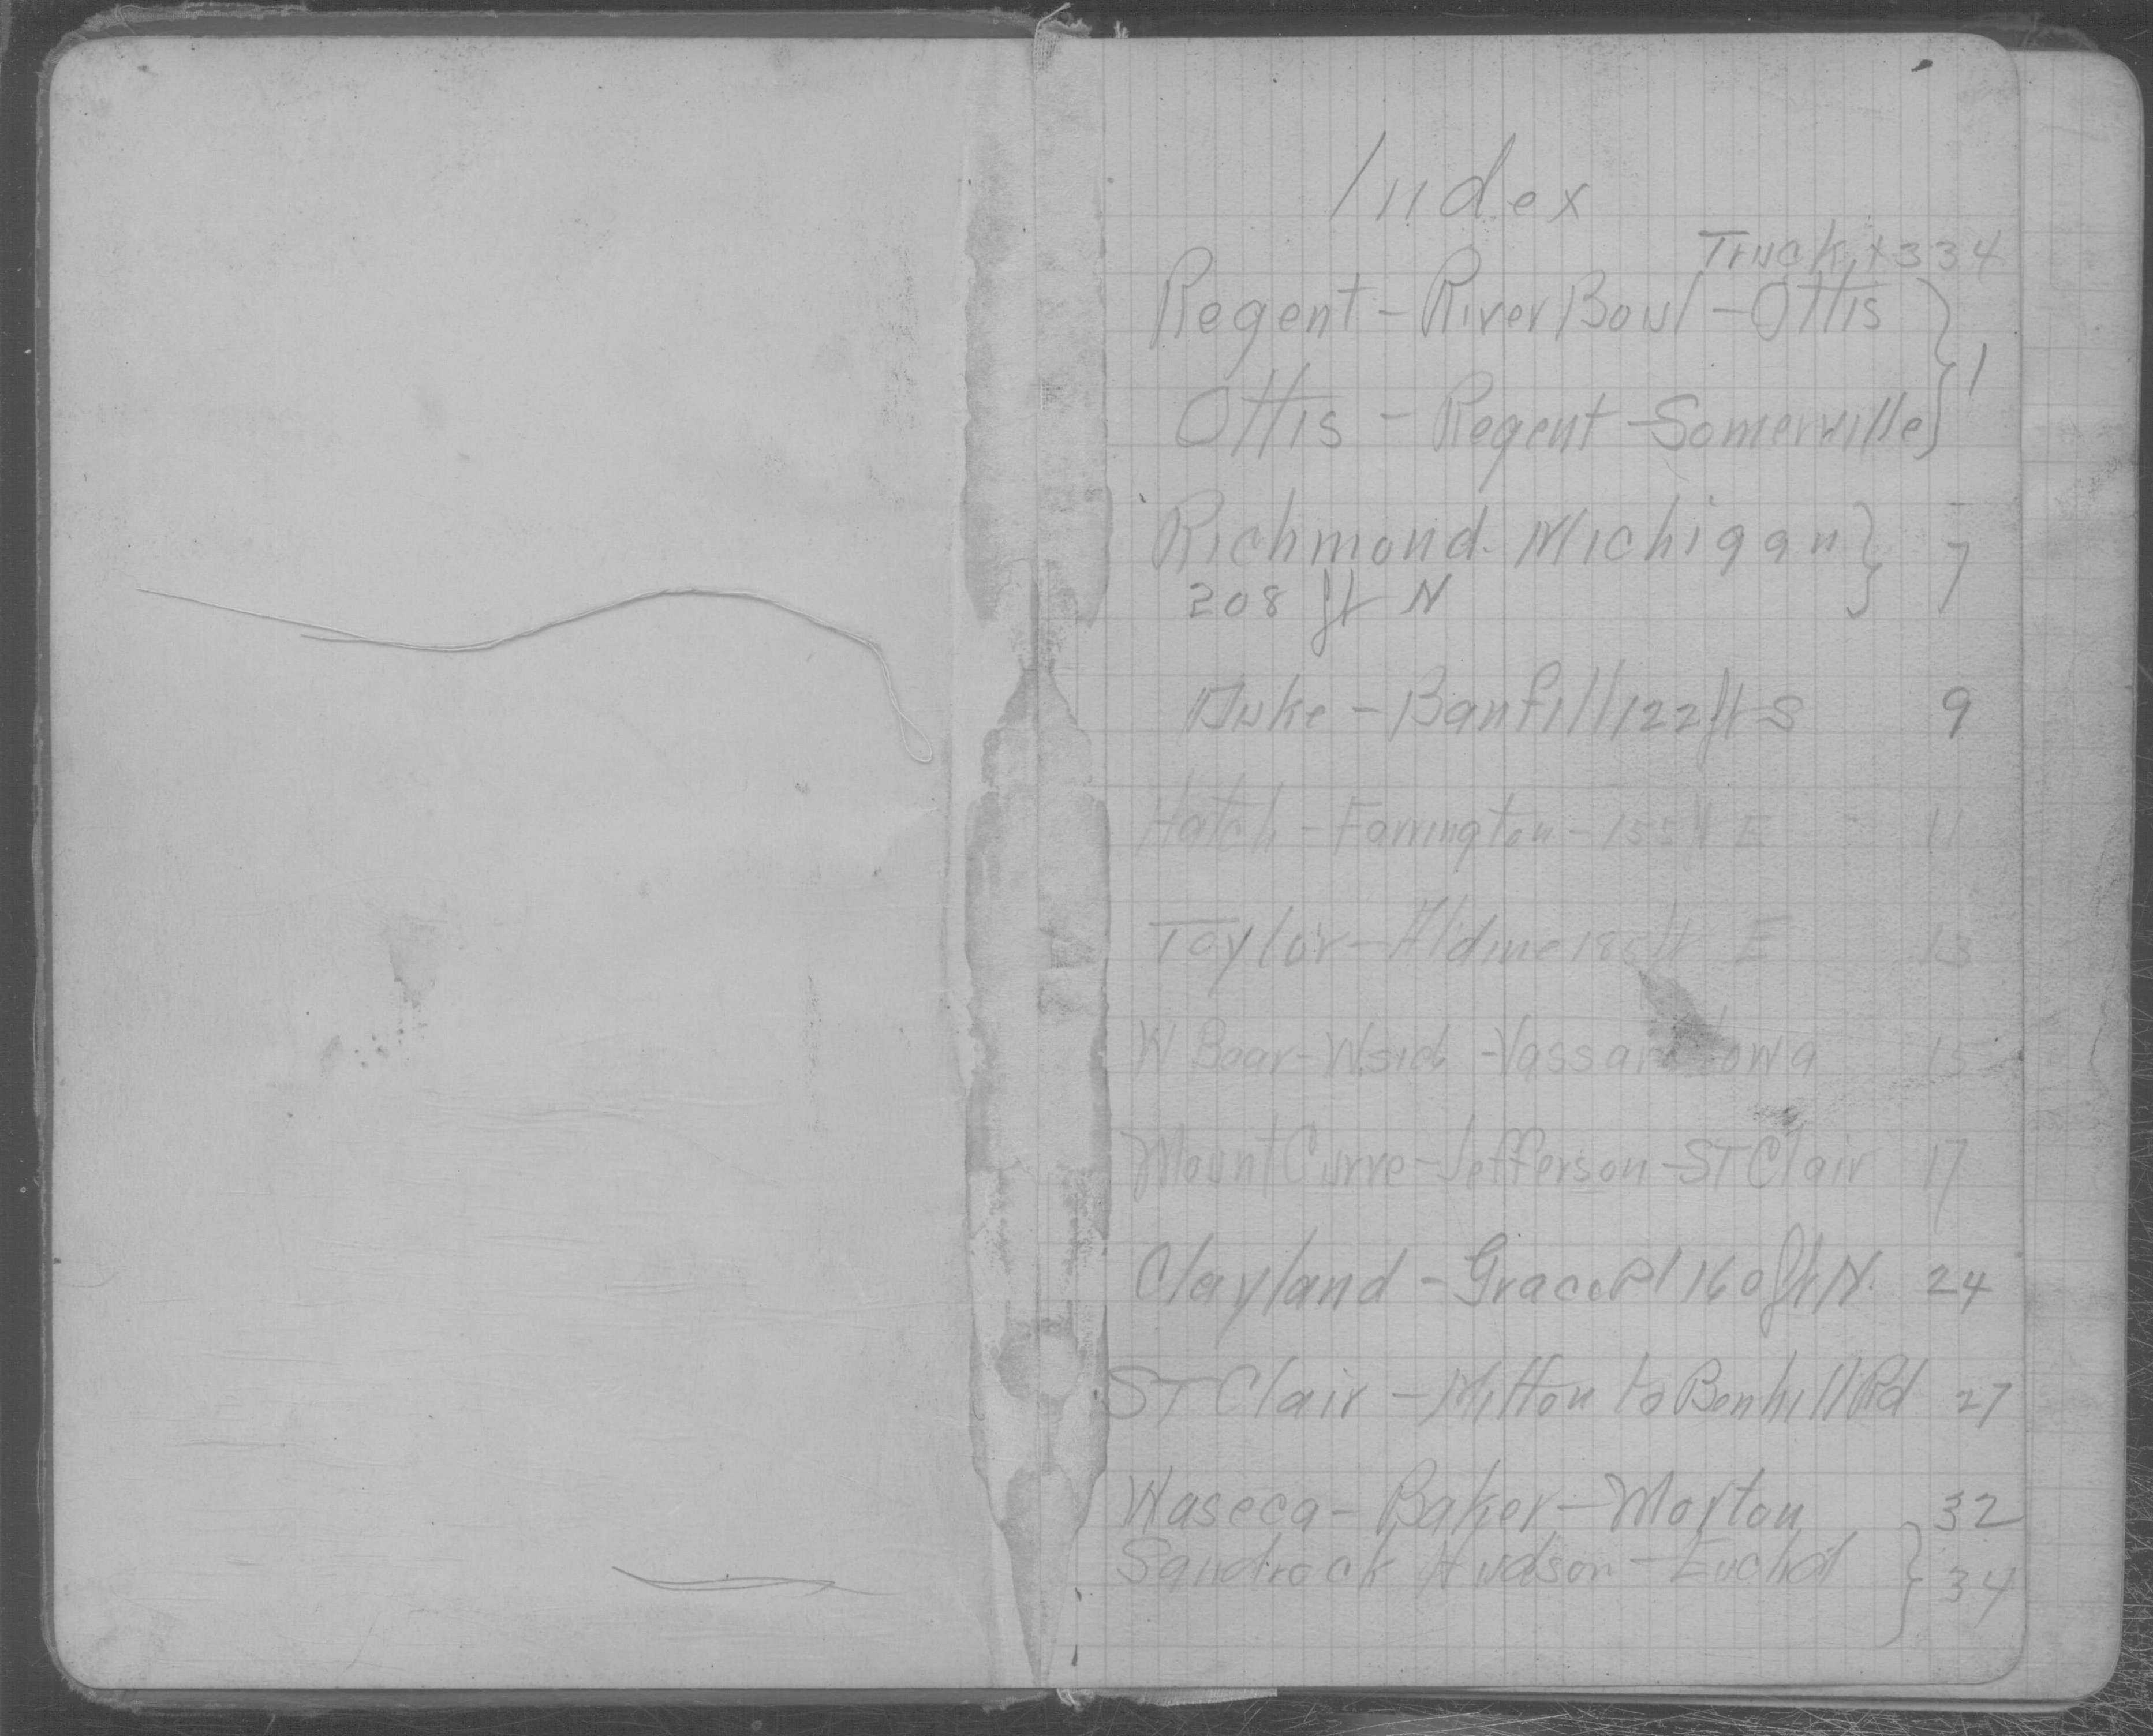 Index
Truck #334
Regent - River Bowl - Ottis } 1
Ottis - Regent - Somerville }
Richmond - Michigan } 7
208 ft N
Duke - Banfill 122 ft S 9
Hatch - Farrington - 155 ft E 11
Taylor - Aldine 185 ft E 13
W Bear - W sid - Vassar Iowa 15
Mount Curve - Jefferson - ST Clair 17
Clayland - Grace Pl 160 ft N. 24
ST Clair - Milton to Benhill Rd 27
Waseca - Baker - Morton 32
Sandrock Hudson - Euclid } 34